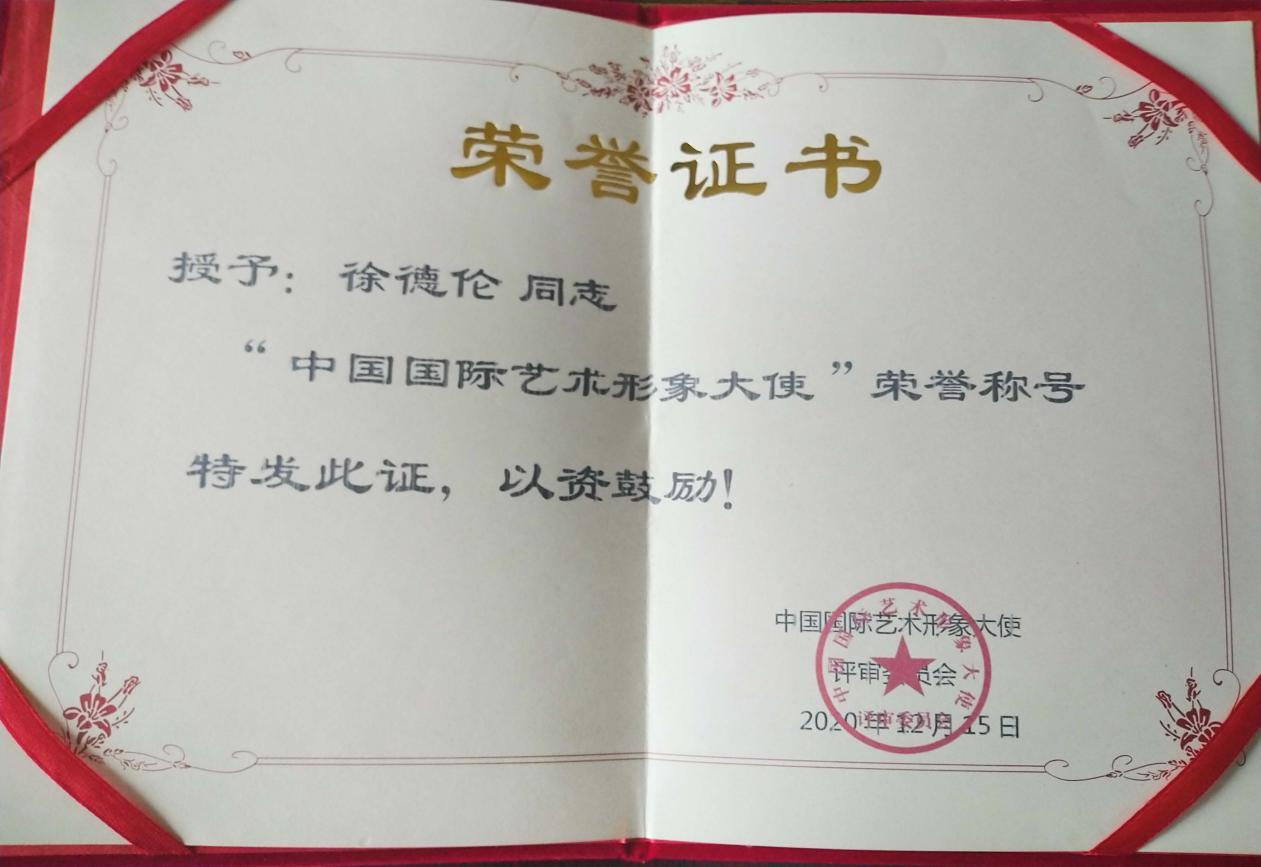 荣誉证书
授予：徐德伦 同志
“中国国际艺术形象大使”荣誉称号
特发此证，以资鼓励！
中国国际艺术形象大使
评审委员会
2020年12月15日
中国国际艺术形象大使
评审委员会